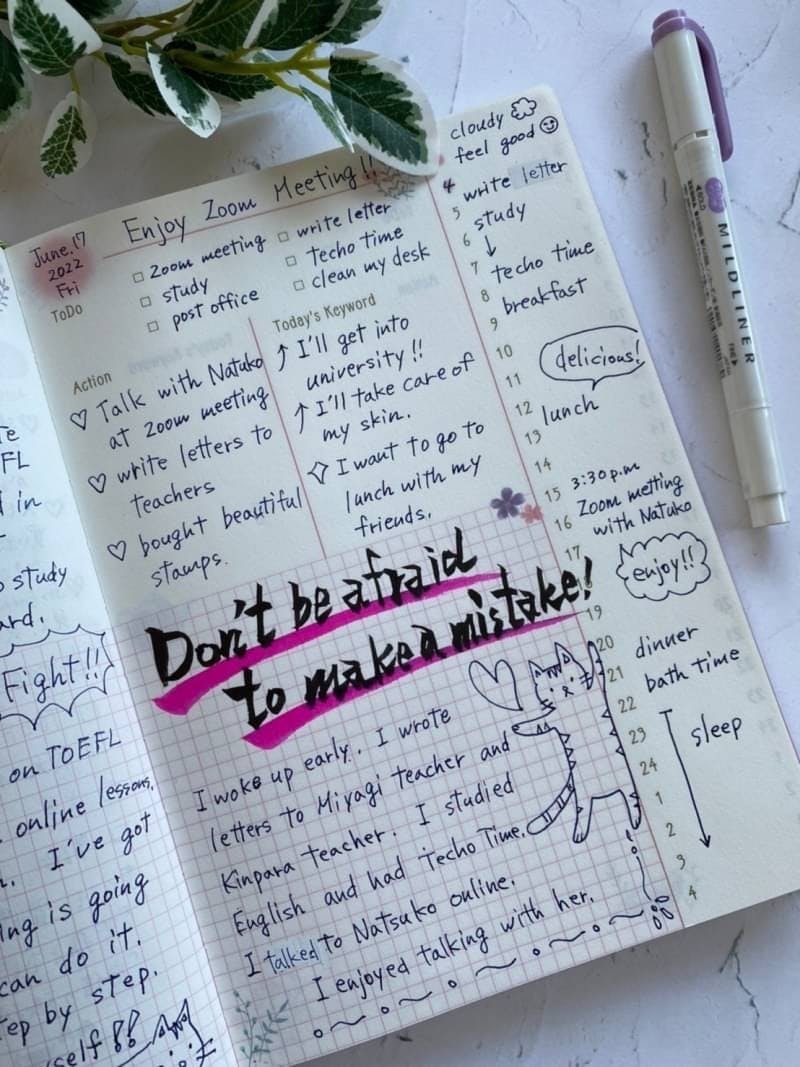 FL
d in
study
ard.
Fight!!
on TOEFL
online lessons,
I've got
ing is going
can do it.
tep by step.
self!!
Enjoy Zoom Meeting!!
June.17
2022
Fri
ToDo
□ zoom meeting
□ study
□ post office
□ write letter
□ Techo time
□ clean my desk
Action
♡ Talk with Natuko
at zoom meeting
♡ write letters to
teachers
♡ bought beautiful
stamps.
Today's Keyword
↑ I'll get into
university!!
↑ I'll take care of
my skin.
✧ I want to go to
lunch with my
friends.
Don't be afraid
to make a mistake!
I woke up early. I wrote
letters to Miyagi teacher and
Kinpara teacher. I studied
English and had Techo Time.
I talked to Natsuko online.
I enjoyed talking with her.
cloudy
feel good
4 write letter
5 study
6 ↓
7 techo time
8 breakfast
9
10 delicious!
11
12 lunch
13
14
15 3:30 p.m
16 Zoom metting
with Natuko
17
enjoy!!
19
20 dinner
21 bath time
22
23 sleep
24
1
2
3
4
MILDLINER